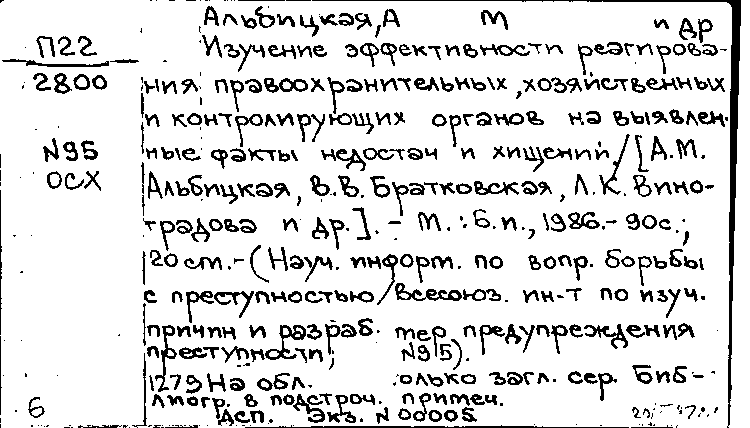 Альбицкая, А М и др
П22
2800
N95
ОСХ
Изучение эффективности реагирова-
ния правоохранительных, хозяйственных
и контролирующих органов на выявлен-
ные факты недостач и хищений / [А.М.
Альбицкая, В.В. Братковская, Л.К. Вино-
градова и др.]. - М. : Б.и., 1986. - 90с.;
20 см. - (Науч. информ. по вопр. борьбы
с преступностью / Всесоюз. ин-т по изуч.
причин и разраб. мер предупреждения
преступности; N95).
1279 На обл. олько загл. сер. Биб-
лиогр. в подстроч. примеч.
Дсп. Экз. N 00005
6